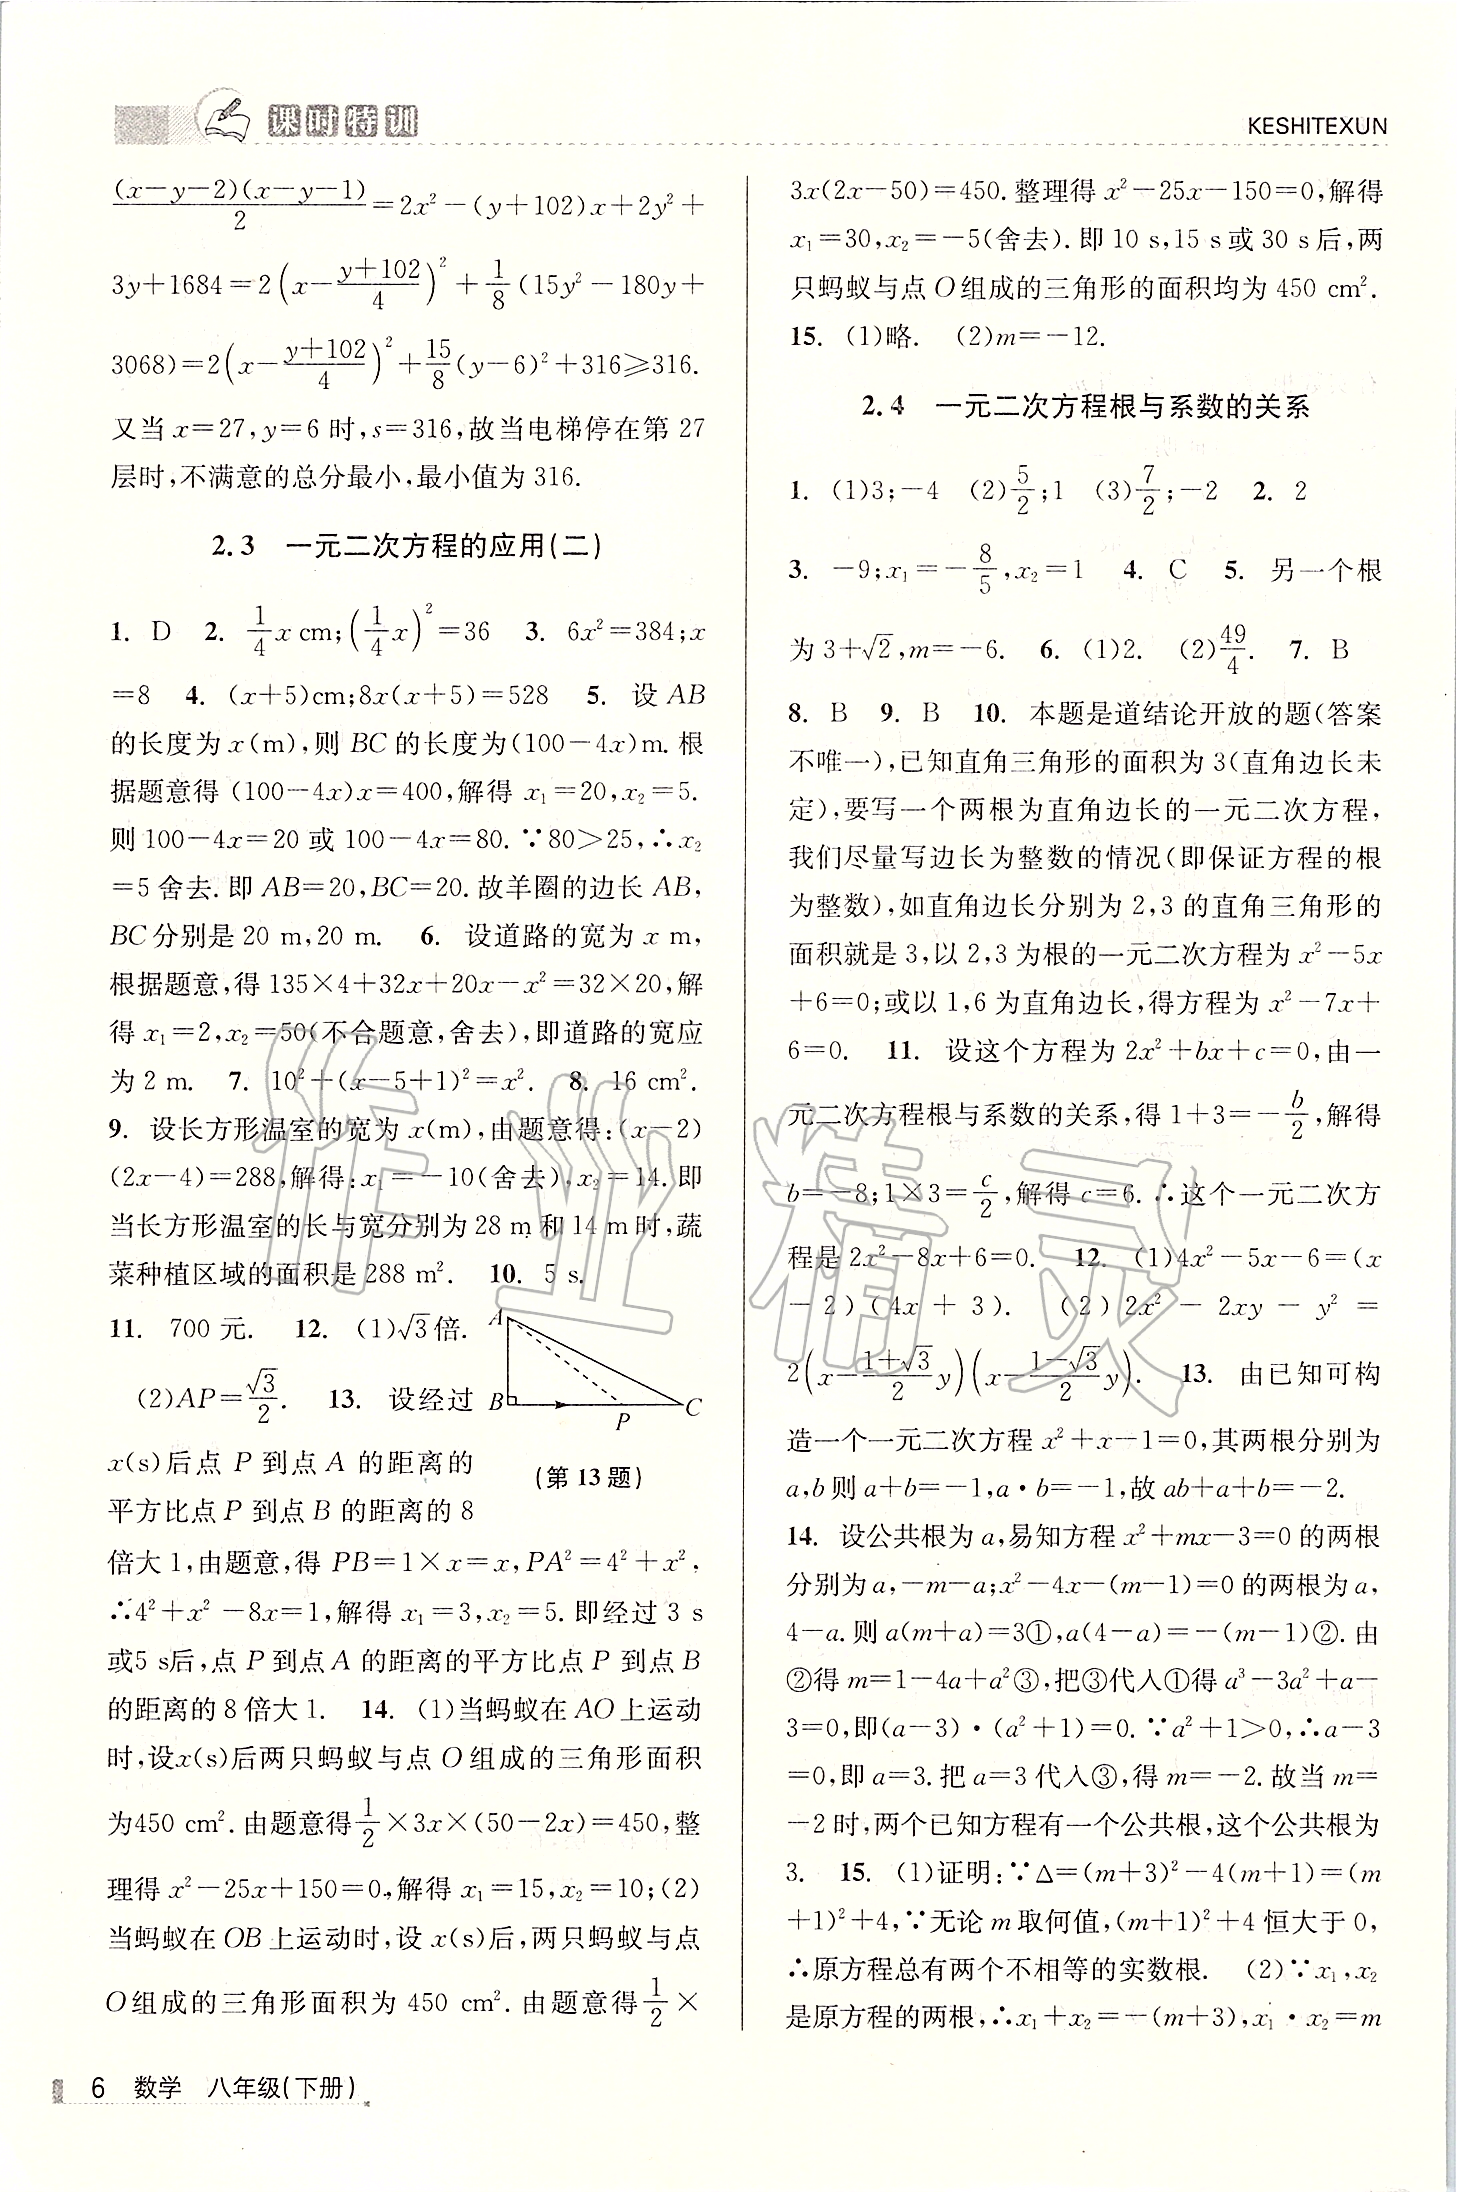 课时特训
KESHITEXUN
(x－y－2)(x－y－1)/2＝2x²－(y＋102)x＋2y²＋
3y＋1684＝2(x－(y＋102)/4)²＋1/8(15y²－180y＋
3068)＝2(x－(y＋102)/4)²＋15/8(y－6)²＋316≥316.
又当 x＝27,y＝6 时,s＝316,故当电梯停在第 27
层时,不满意的总分最小,最小值为 316.
2.3 一元二次方程的应用(二)
1. D 2. 1/4 x cm;(1/4 x)²＝36 3. 6x²＝384;x
＝8 4. (x＋5)cm;8x(x＋5)＝528 5. 设 AB
的长度为 x(m),则 BC 的长度为(100－4x)m. 根
据题意得 (100－4x)x＝400,解得 x₁＝20,x₂＝5.
则 100－4x＝20 或 100－4x＝80. ∵80＞25,∴x₂
＝5 舍去. 即 AB＝20,BC＝20. 故羊圈的边长 AB,
BC 分别是 20 m,20 m. 6. 设道路的宽为 x m,
根据题意,得 135×4＋32x＋20x－x²＝32×20,解
得 x₁＝2,x₂＝50(不合题意,舍去),即道路的宽应
为 2 m. 7. 10²＋(x－5＋1)²＝x². 8. 16 cm².
9. 设长方形温室的宽为 x(m),由题意得:(x－2)
(2x－4)＝288,解得:x₁＝－10(舍去),x₂＝14. 即
当长方形温室的长与宽分别为 28 m 和 14 m 时,蔬
菜种植区域的面积是 288 m². 10. 5 s.
11. 700 元. 12. (1)√3倍.
(2)AP＝√3/2. 13. 设经过
x(s)后点 P 到点 A 的距离的
平方比点 P 到点 B 的距离的 8
A
B
P
C
(第 13 题)
倍大 1,由题意,得 PB＝1×x＝x,PA²＝4²＋x²,
∴4²＋x²－8x＝1,解得 x₁＝3,x₂＝5. 即经过 3 s
或5 s后,点 P 到点 A 的距离的平方比点 P 到点 B
的距离的 8 倍大 1. 14. (1)当蚂蚁在 AO 上运动
时,设x(s)后两只蚂蚁与点 O 组成的三角形面积
为450 cm². 由题意得1/2×3x×(50－2x)＝450,整
理得 x²－25x＋150＝0,解得 x₁＝15,x₂＝10;(2)
当蚂蚁在 OB 上运动时,设 x(s)后,两只蚂蚁与点
O组成的三角形面积为 450 cm². 由题意得1/2×
3x(2x－50)＝450. 整理得 x²－25x－150＝0,解得
x₁＝30,x₂＝－5(舍去). 即 10 s,15 s或 30 s 后,两
只蚂蚁与点 O 组成的三角形的面积均为 450 cm².
15. (1)略. (2)m＝－12.
2.4 一元二次方程根与系数的关系
1. (1)3;－4 (2)5/2;1 (3)7/2;－2 2. 2
3. －9;x₁＝－8/5,x₂＝1 4. C 5. 另一个根
为 3＋√2,m＝－6. 6. (1)2. (2)49/4. 7. B
8. B 9. B 10. 本题是道结论开放的题(答案
不唯一),已知直角三角形的面积为 3(直角边长未
定),要写一个两根为直角边长的一元二次方程,
我们尽量写边长为整数的情况(即保证方程的根
为整数),如直角边长分别为 2,3 的直角三角形的
面积就是 3,以 2,3 为根的一元二次方程为 x²－5x
＋6＝0;或以 1,6 为直角边长,得方程为 x²－7x＋
6＝0. 11. 设这个方程为 2x²＋bx＋c＝0,由一
元二次方程根与系数的关系,得 1＋3＝－b/2,解得
b＝－8;1×3＝c/2,解得 c＝6. ∴这个一元二次方
程是 2x²－8x＋6＝0. 12. (1)4x²－5x－6＝(x
－2)(4x＋3). (2)2x²－2xy－y²＝
2(x－(1＋√3)/2 y)(x－(1－√3)/2 y). 13. 由已知可构
造一个一元二次方程 x²＋x－1＝0,其两根分别为
a,b 则 a＋b＝－1,a·b＝－1,故 ab＋a＋b＝－2.
14. 设公共根为 a,易知方程 x²＋mx－3＝0 的两根
分别为 a,－m－a;x²－4x－(m－1)＝0 的两根为 a,
4－a. 则 a(m＋a)＝3①,a(4－a)＝－(m－1)②. 由
②得 m＝1－4a＋a²③,把③代入①得 a³－3a²＋a－
3＝0,即(a－3)·(a²＋1)＝0. ∵a²＋1＞0,∴a－3
＝0,即 a＝3. 把 a＝3 代入③,得 m＝－2. 故当 m＝
－2 时,两个已知方程有一个公共根,这个公共根为
3. 15. (1)证明:∵Δ＝(m＋3)²－4(m＋1)＝(m
＋1)²＋4,∵无论 m 取何值,(m＋1)²＋4 恒大于 0,
∴原方程总有两个不相等的实数根. (2)∵x₁,x₂
是原方程的两根,∴x₁＋x₂＝－(m＋3),x₁·x₂＝m
作业精灵
6 数学 八年级(下册)